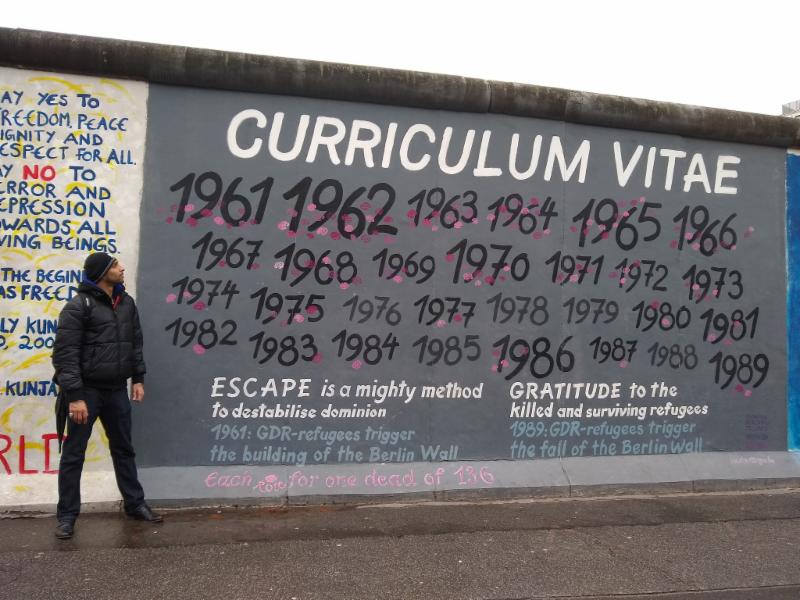 AY YES TO
FREEDOM, PEACE
IGNITY AND
ESPECT FOR ALL.
AY NO TO
ERROR AND
EPRESSION
OWARDS ALL
VING BEINGS.
THE BEGINI
AS FREED
LY KUN
KUNJA
RLD
CURRICULUM VITAE
1961 1962 1963 1964 1965 1966
1967 1968 1969 1970 1971 1972 1973
1974 1975 1976 1977 1978 1979 1980 1981
1982 1983 1984 1985 1986 1987 1988 1989
ESCAPE is a mighty method
to destabilise dominion
1961: GDR-refugees trigger
the building of the Berlin Wall
GRATITUDE to the
killed and surviving refugees
1989: GDR-refugees trigger
the fall of the Berlin Wall
Each for one dead of 136